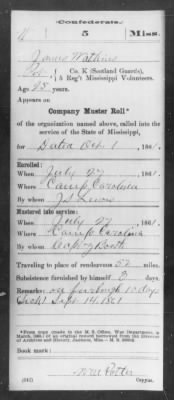 Confederate.
5 Miss.
James Watkins
Co. K (Scotland Guards),
5 Reg't Mississippi Volunteers.
Age 25 years.
Appears on
Company Muster Roll*
of the organization named above, called into the
service of the State of Mississippi,
for Dated Oct 1, 1861.
Enrolled:
When July 27, 1861.
Where Camp Carolina
By whom J.S. Lewis
Mustered into service:
When July 27, 1861.
Where Camp Carolina
By whom
Traveling to place of rendezvous 52 miles.
Subsistence furnished by himself 3 days.
Remarks: on furlough 10 days
Sick Sept. 14. 1861
*From copy made in the M. S. Office, War Department, in
of an original record borrowed from the Director
of Archives and History, Jackson, Miss.
Book mark:
W.M. Potter
Copyist.